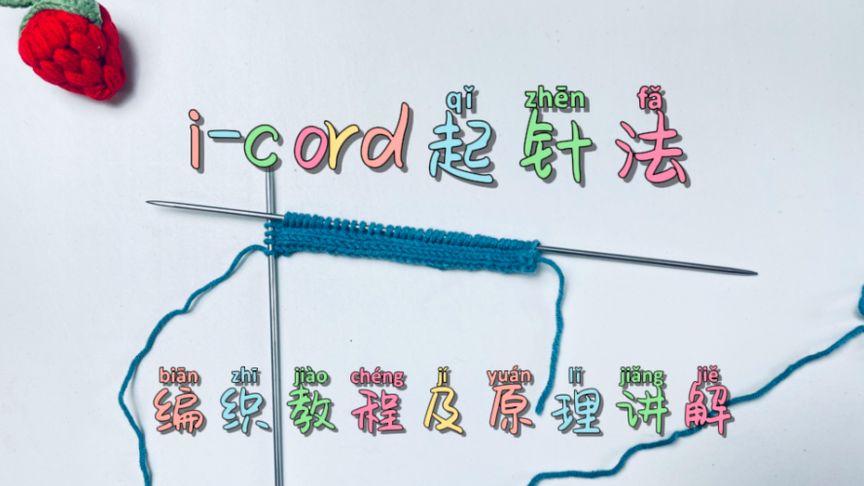 qǐ zhēn fǎ
i-cord起针法
biān zhī jiào chéng jí yuán lǐ jiǎng jiě
编织教程及原理讲解